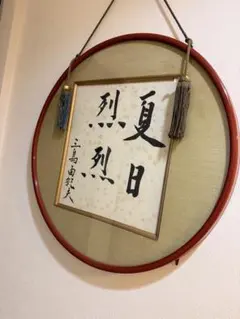 夏日
烈烈
三島由紀夫